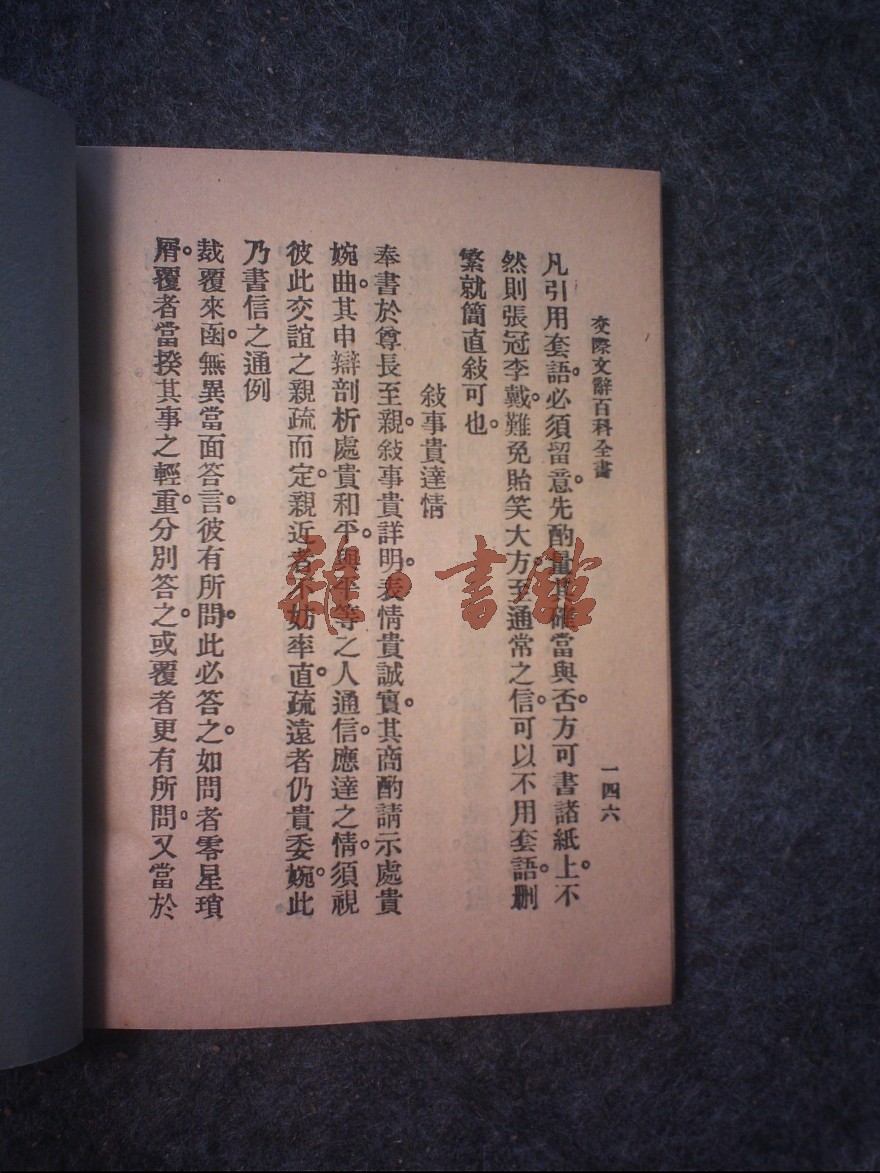 交際文辭百科全書
一四六
凡引用套語。必須留意。先酌量其確當與否。方可書諸紙上。不
然則張冠李戴。難免貽笑大方。至通常之信。可以不用套語。删
繁就簡。直敍可也。
敍事貴達情
奉書於尊長至親。敍事貴詳明。表情貴誠實。其商酌請示處貴
婉曲。其申辯剖析處貴和平。與平等之人通信。應達之情。須視
彼此交誼之親疏而定。親近者不妨率直。疏遠者仍貴委婉。此
乃書信之通例
裁覆來函。無異當面答言。彼有所問。此必答之。如問者零星瑣
屑。覆者當揆其事之輕重。分別答之。或覆者更有所問。又當於
雜·書館